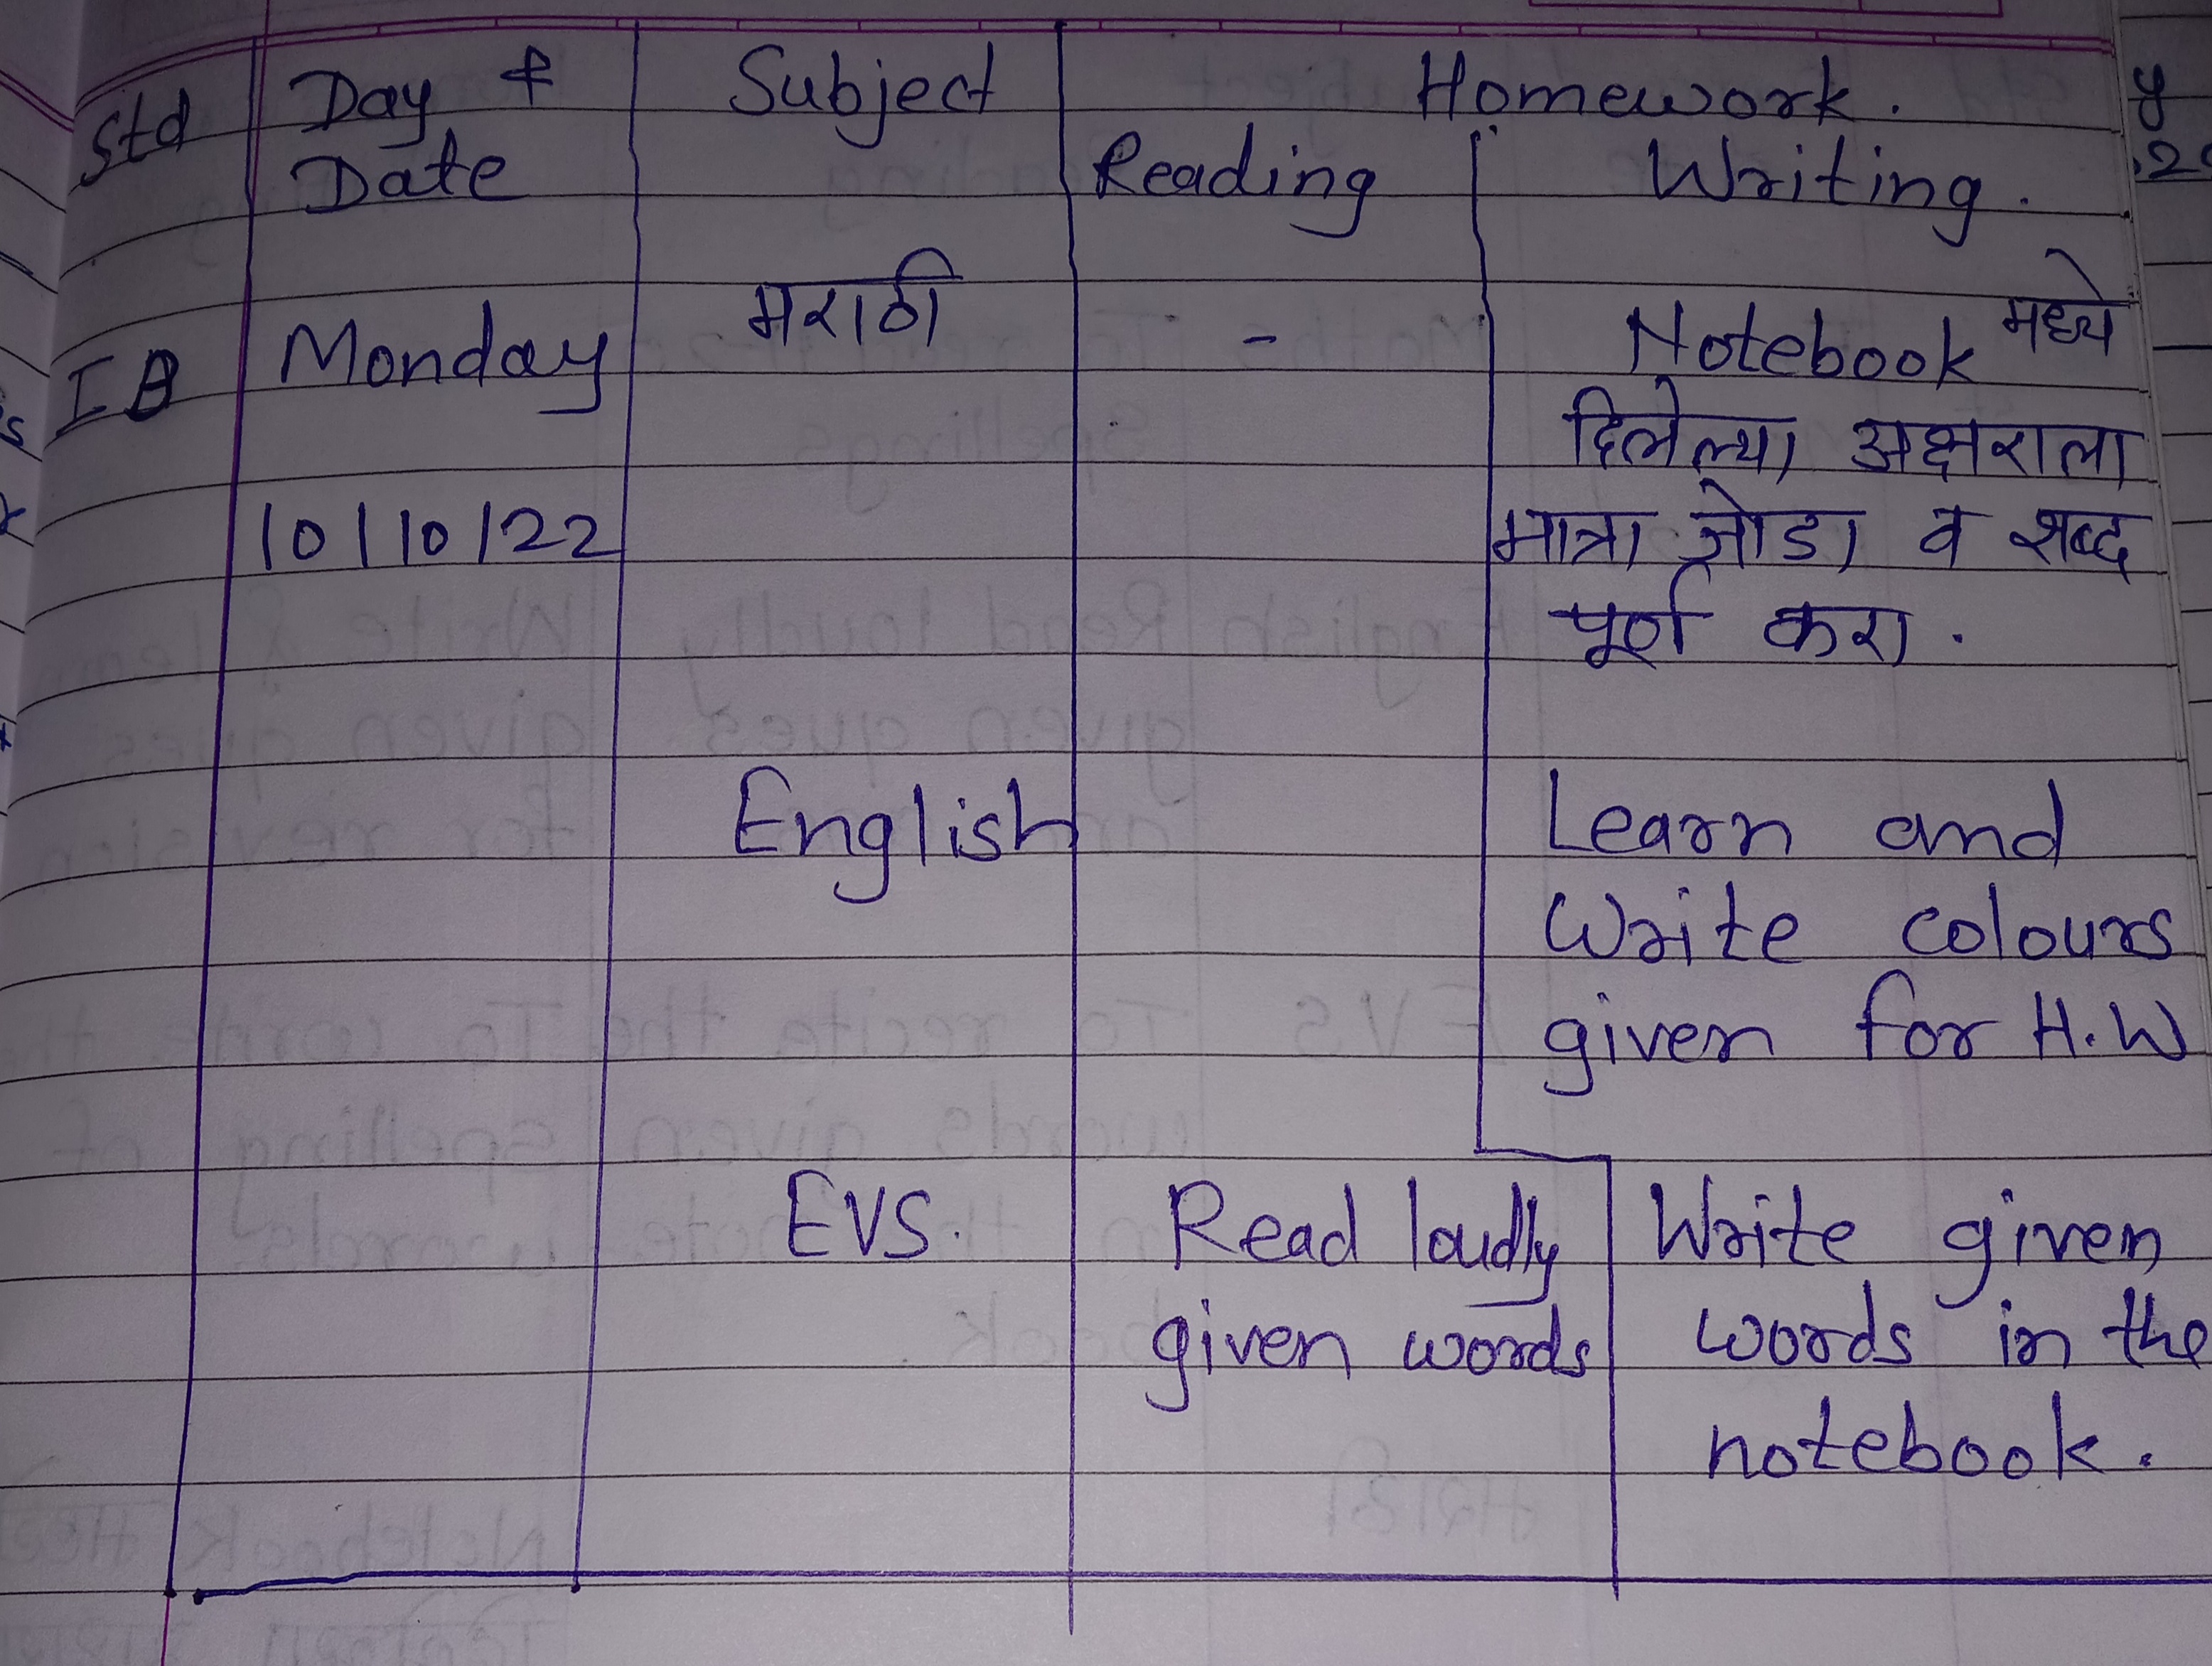 Std Day & Subject Homework.
Date Reading Writing.
I B Monday मराठी - Notebook मध्ये
दिलेल्या अक्षराला
10/10/22 मात्रा जोडा व शब्द
पूर्ण करा.
English Learn and
Write colours
given for H.W
EVS. Read loudly Write given
given words words in the
notebook.